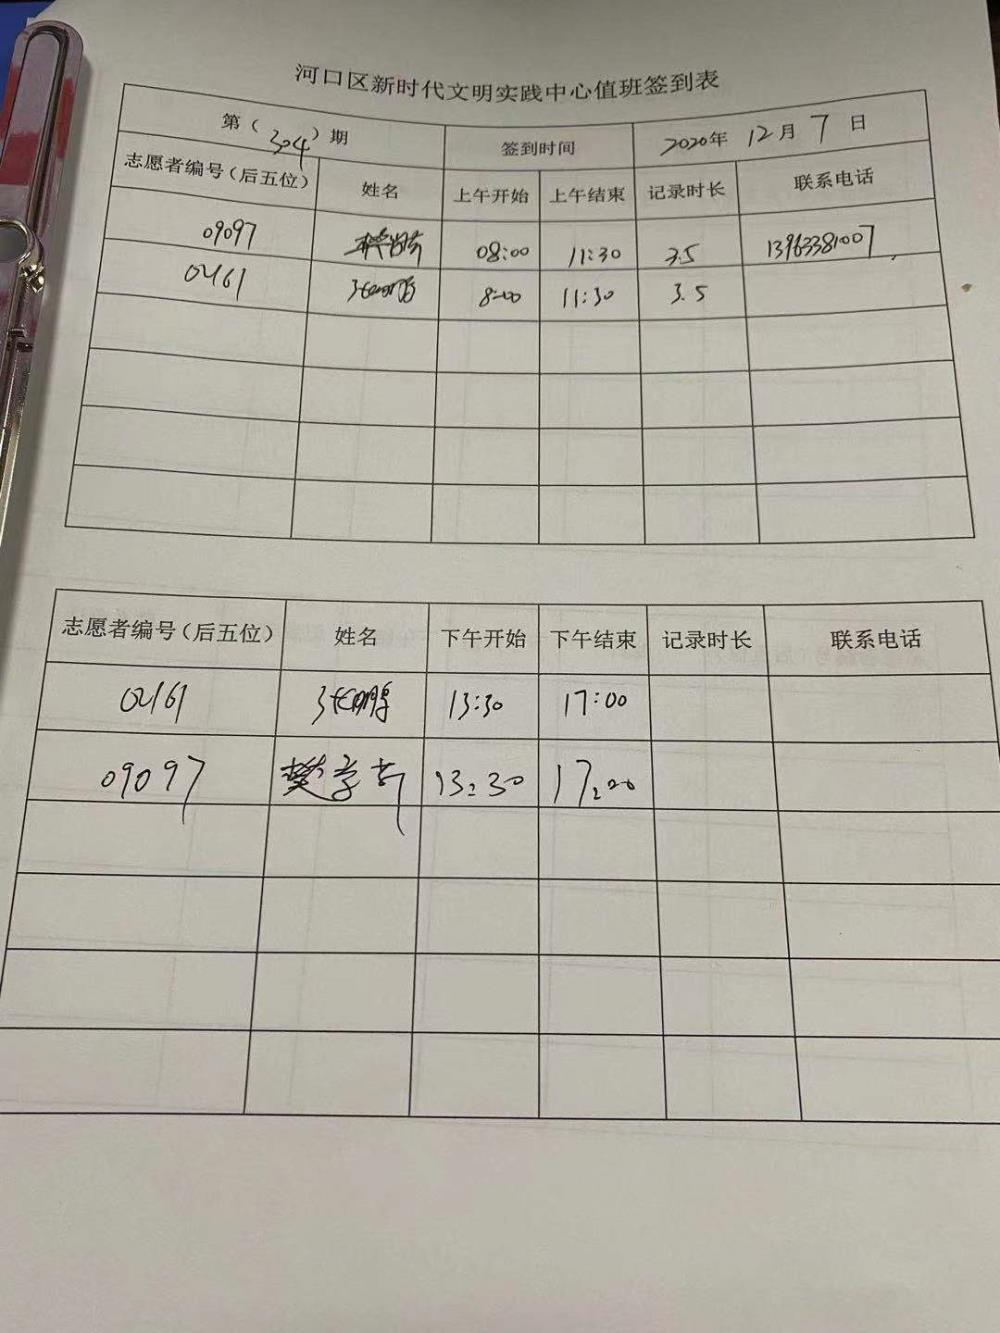 河口区新时代文明实践中心值班签到表
第（304）期 签到时间 2020年 12月 7日
志愿者编号（后五位） 姓名 上午开始 上午结束 记录时长 联系电话
09097 08:00 11:30 3.5 13963381007
02161 8:00 11:30 3.5
志愿者编号（后五位） 姓名 下午开始 下午结束 记录时长 联系电话
02161 13:30 17:00
09097 13:30 17:00